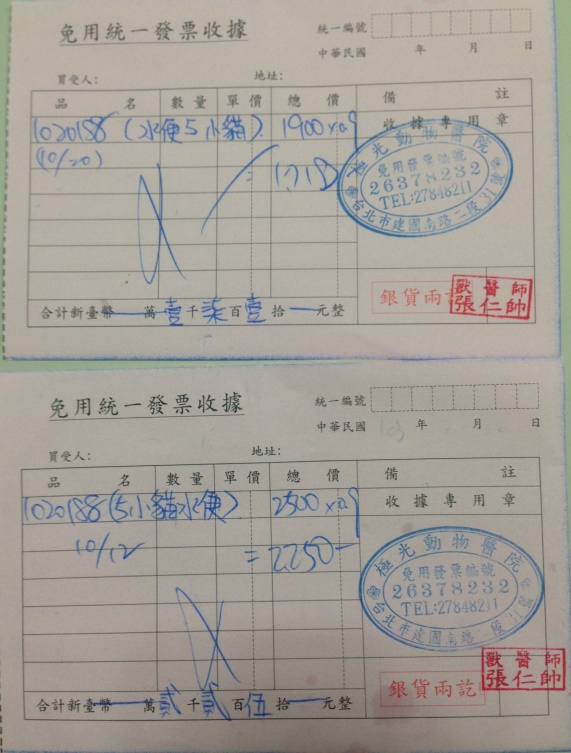 免用統一發票收據
統一編號
中華民國 年 月 日
買受人: 地址:
品名 數量 單價 總價 備註
收據專用章
1020188 (水便5小貓) 1900x0.9
(10/20)
= 1710
極光動物醫院
免用發票編號
26378232
TEL:27848211
台北市建國南路二段31號
銀貨兩
獸醫師
張仁帥
合計新臺幣 萬壹千柒百壹拾 元整
免用統一發票收據
統一編號
中華民國 年 月 日
買受人: 地址:
品名 數量 單價 總價 備註
收據專用章
1020188 (5小貓水便) 2500x0.9
10/12 = 2250-
極光動物醫院
免用發票編號
26378232
TEL:27848211
台北市建國南路
銀貨兩訖
獸醫師
張仁帥
合計新臺幣 萬貳千貳百伍拾 元整